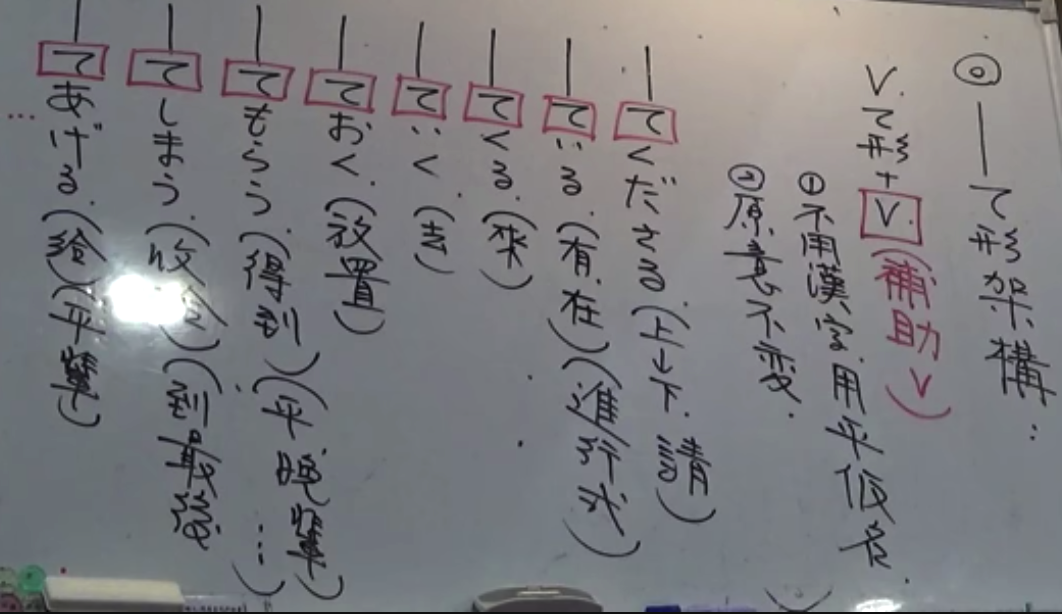 ◎ —— て形架構:
V.て形+V.(補助V)
①不用漢字,用平仮名.
②原意不変.
—てくださる.(上→下.請)
—ている.(有.在)(進行式)
—てくる.(來)
—ていく.(去)
—ておく.(放置)
—てもらう.(得到)(平晚輩)
—てしまう.(收拾)(到最後…)
—てあげる.(給)(平輩)
…